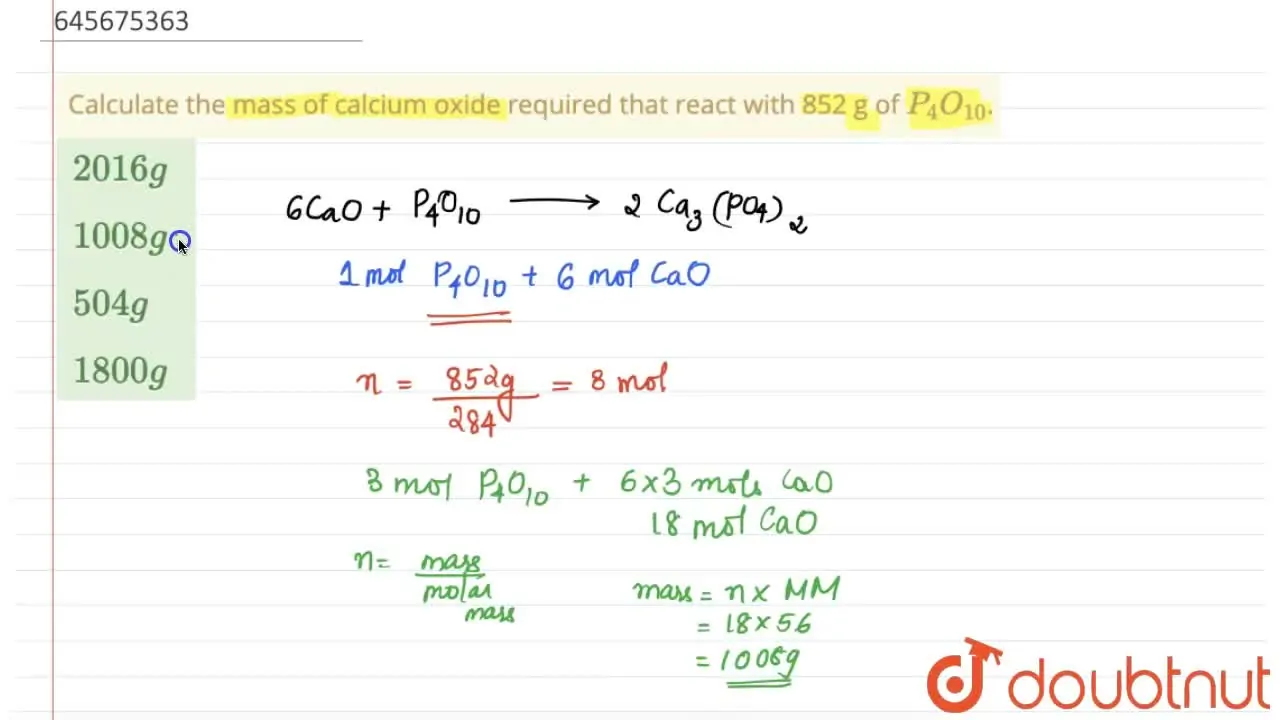 645675363
Calculate the mass of calcium oxide required that react with 852 g of P₄O₁₀.
2016g
1008g
504g
1800g
6CaO + P₄O₁₀ ⟶ 2 Ca₃(PO₄)₂
1 mol P₄O₁₀ + 6 mol CaO
n = 852g/284 = 3 mol
3 mol P₄O₁₀ + 6×3 mols CaO
18 mol CaO
n = mass/molar mass
mass = n × MM
= 18×56
= 1008g
doubtnut